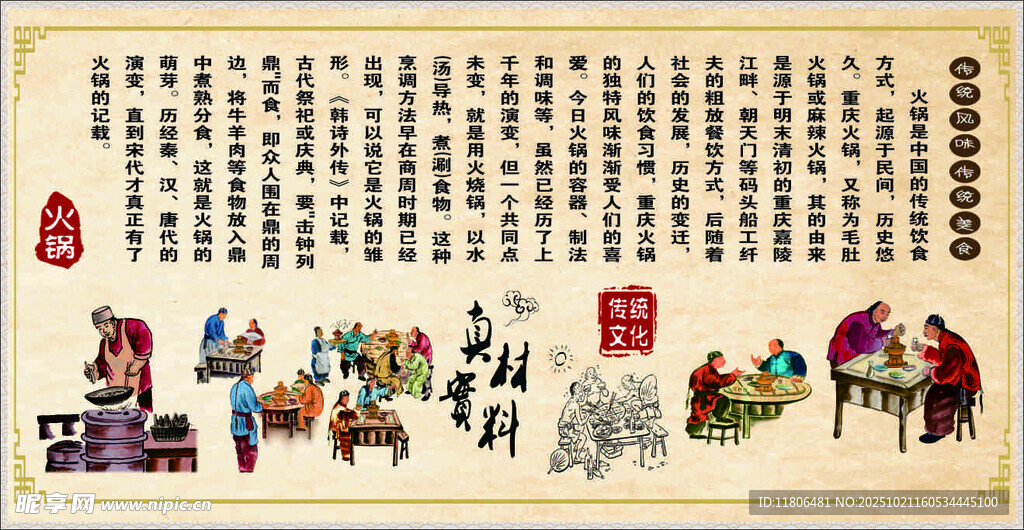 传统风味传统美食
火锅是中国的传统饮食
方式，起源于民间，历史悠
久。重庆火锅，又称为毛肚
火锅或麻辣火锅，其的由来
是源于明末清初的重庆嘉陵
江畔、朝天门等码头船工纤
夫的粗放餐饮方式，后随着
社会的发展，历史的变迁，
人们的饮食习惯，重庆火锅
的独特风味渐渐受人们的喜
爱。今日火锅的容器、制法
和调味等，虽然已经历了上
千年的演变，但一个共同点
未变，就是用火烧锅，以水
(汤)导热，煮(涮)食物。这种
烹调方法早在商周时期已经
出现，可以说它是火锅的雏
形。《韩诗外传》中记载，
古代祭祀或庆典，要"击钟列
鼎"而食，即众人围在鼎的周
边，将牛羊肉等食物放入鼎
中煮熟分食，这就是火锅的
萌芽。历经秦、汉、唐代的
演变，直到宋代才真正有了
火锅的记载。
火锅
真材實料
传统
文化
昵享网 www.nipic.cn
ID:11806481 NO:20251021160534445100